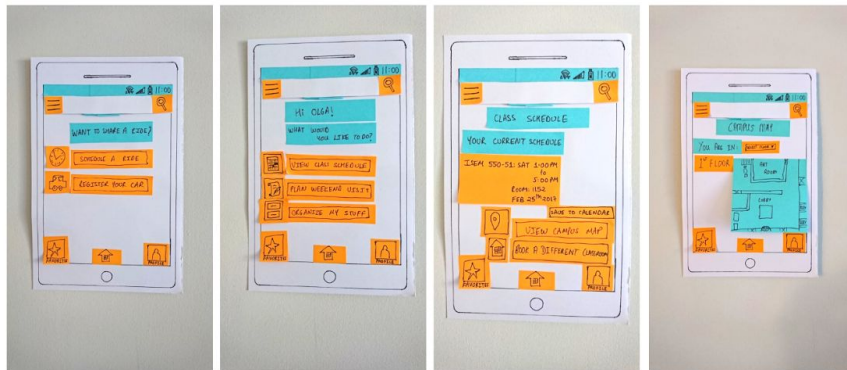 11:00
WANT TO SHARE A RIDE?
SCHEDULE A RIDE
REGISTER YOUR CAR
FAVORITES
PROFILE
11:00
HI OLGA!
WHAT WOULD
YOU LIKE TO DO?
VIEW CLASS SCHEDULE
PLAN WEEKEND VISIT
ORGANIZE MY STUFF
FAVORITES
PROFILE
11:00
CLASS SCHEDULE
YOUR CURRENT SCHEDULE
ISEM 550-51: SAT 1:00PM
to
5:00PM
ROOM: 1152
FEB 25TH 2017
SAVE TO CALENDAR
VIEW CAMPUS MAP
BOOK A DIFFERENT CLASSROOM
FAVORITES
PROFILE
11:00
CAMPUS MAP
YOU ARE IN:
1ST FLOOR
ART
ROOM
LOBBY
PROFILE